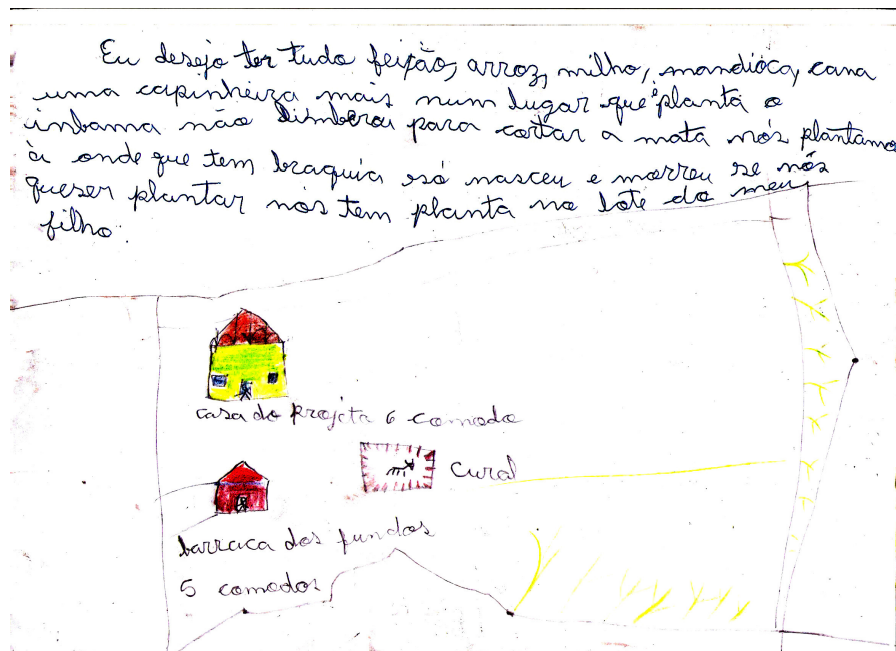 Eu desejo ter tudo feijão, arroz, milho, mandióca, cana
uma capinheira mais num lugar que planta o
imbama não limberou para cortar a mata nós plantamo
ai onde que tem braquia só nasceu e morreu se nós
queser plantar nós tem planta no lote do meu
filho.
casa do projeta 6 comodo
cural
barraca dos fundos
5 comodos